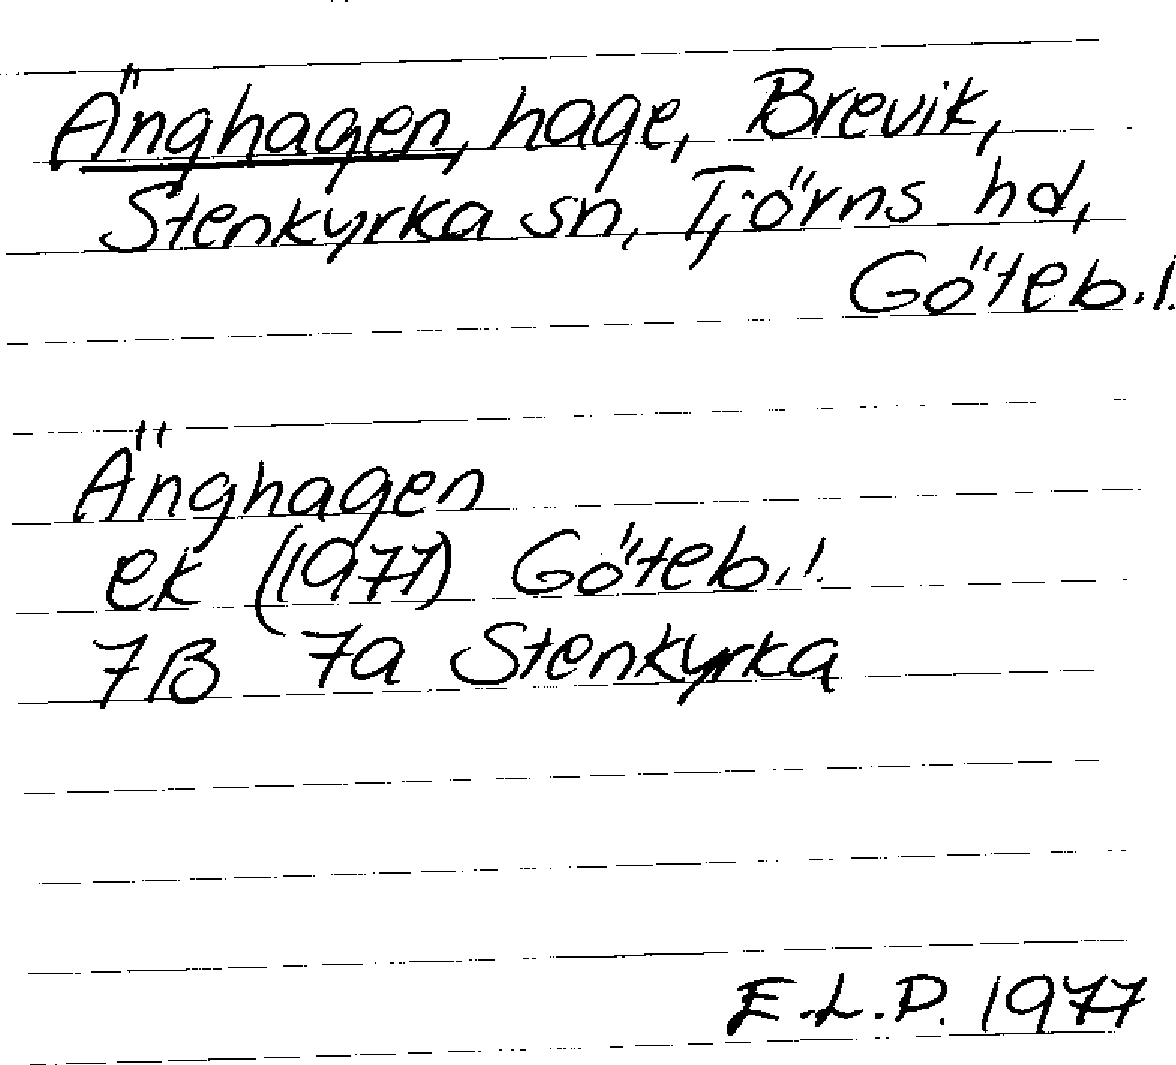 Änghagen, hage, Brevik,
Stenkyrka sn, Tjörns hd,
Göteb.l.
Änghagen
ek (1977) Göteb.l.
7B 7a Stenkyrka
E.L.P. 1977